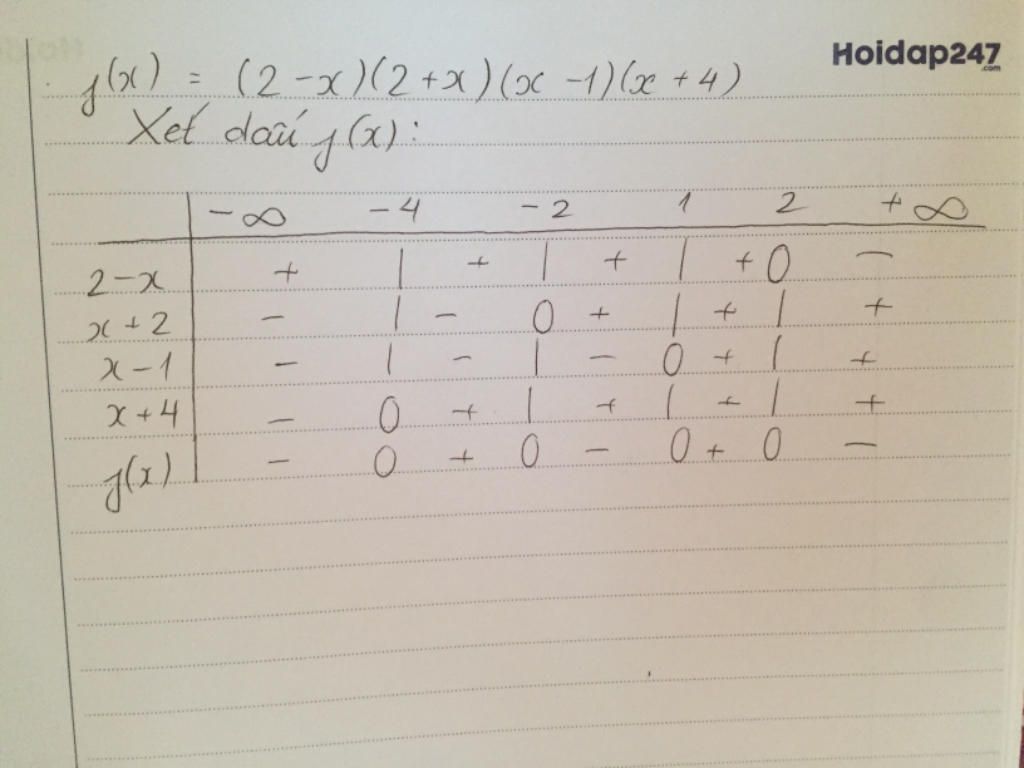 Hoidap247
.com
f(x) = (2-x)(2+x)(x-1)(x+4)
Xét dấu f(x):
-∞ -4 -2 1 2 +∞
2-x + | + | + | + 0 -
x+2 - | - 0 + | + | +
x-1 - | - | - 0 + | +
x+4 - 0 + | + | + | +
f(x) - 0 + 0 - 0 + 0 -